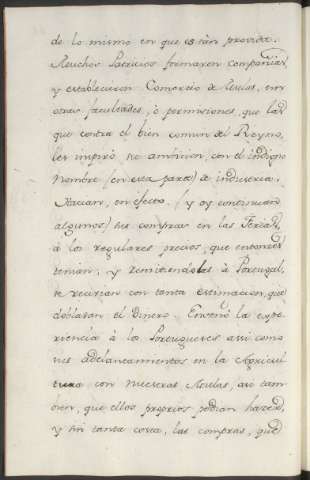 de lo mismo en que es tan provida.
Muchos Patricios formaron compañias,
y establecieron Comercio de Mulas, sin
otras facultades, ó permisiones, que las
que contra el bien comun del Reyno,
les inspiró su ambicion, con el indigno
Nombre (en esta parte) de industria.
Hacian, en efecto, (y oy continuan
algunos) sus compras en las Ferias,
á los regulares precios, que entonces
tenian; y remitiendolas à Portugal,
se recivian con tanta estimacion, que
doblavan el Dinero. Enseñó la espe
riencia à los Portugueses assi como
sus adelantamientos en la Agricul
tura con nuestras Mulas, assi tam
bien, que ellos proprios podian hazer,
y sin tanta costa, las compras, que